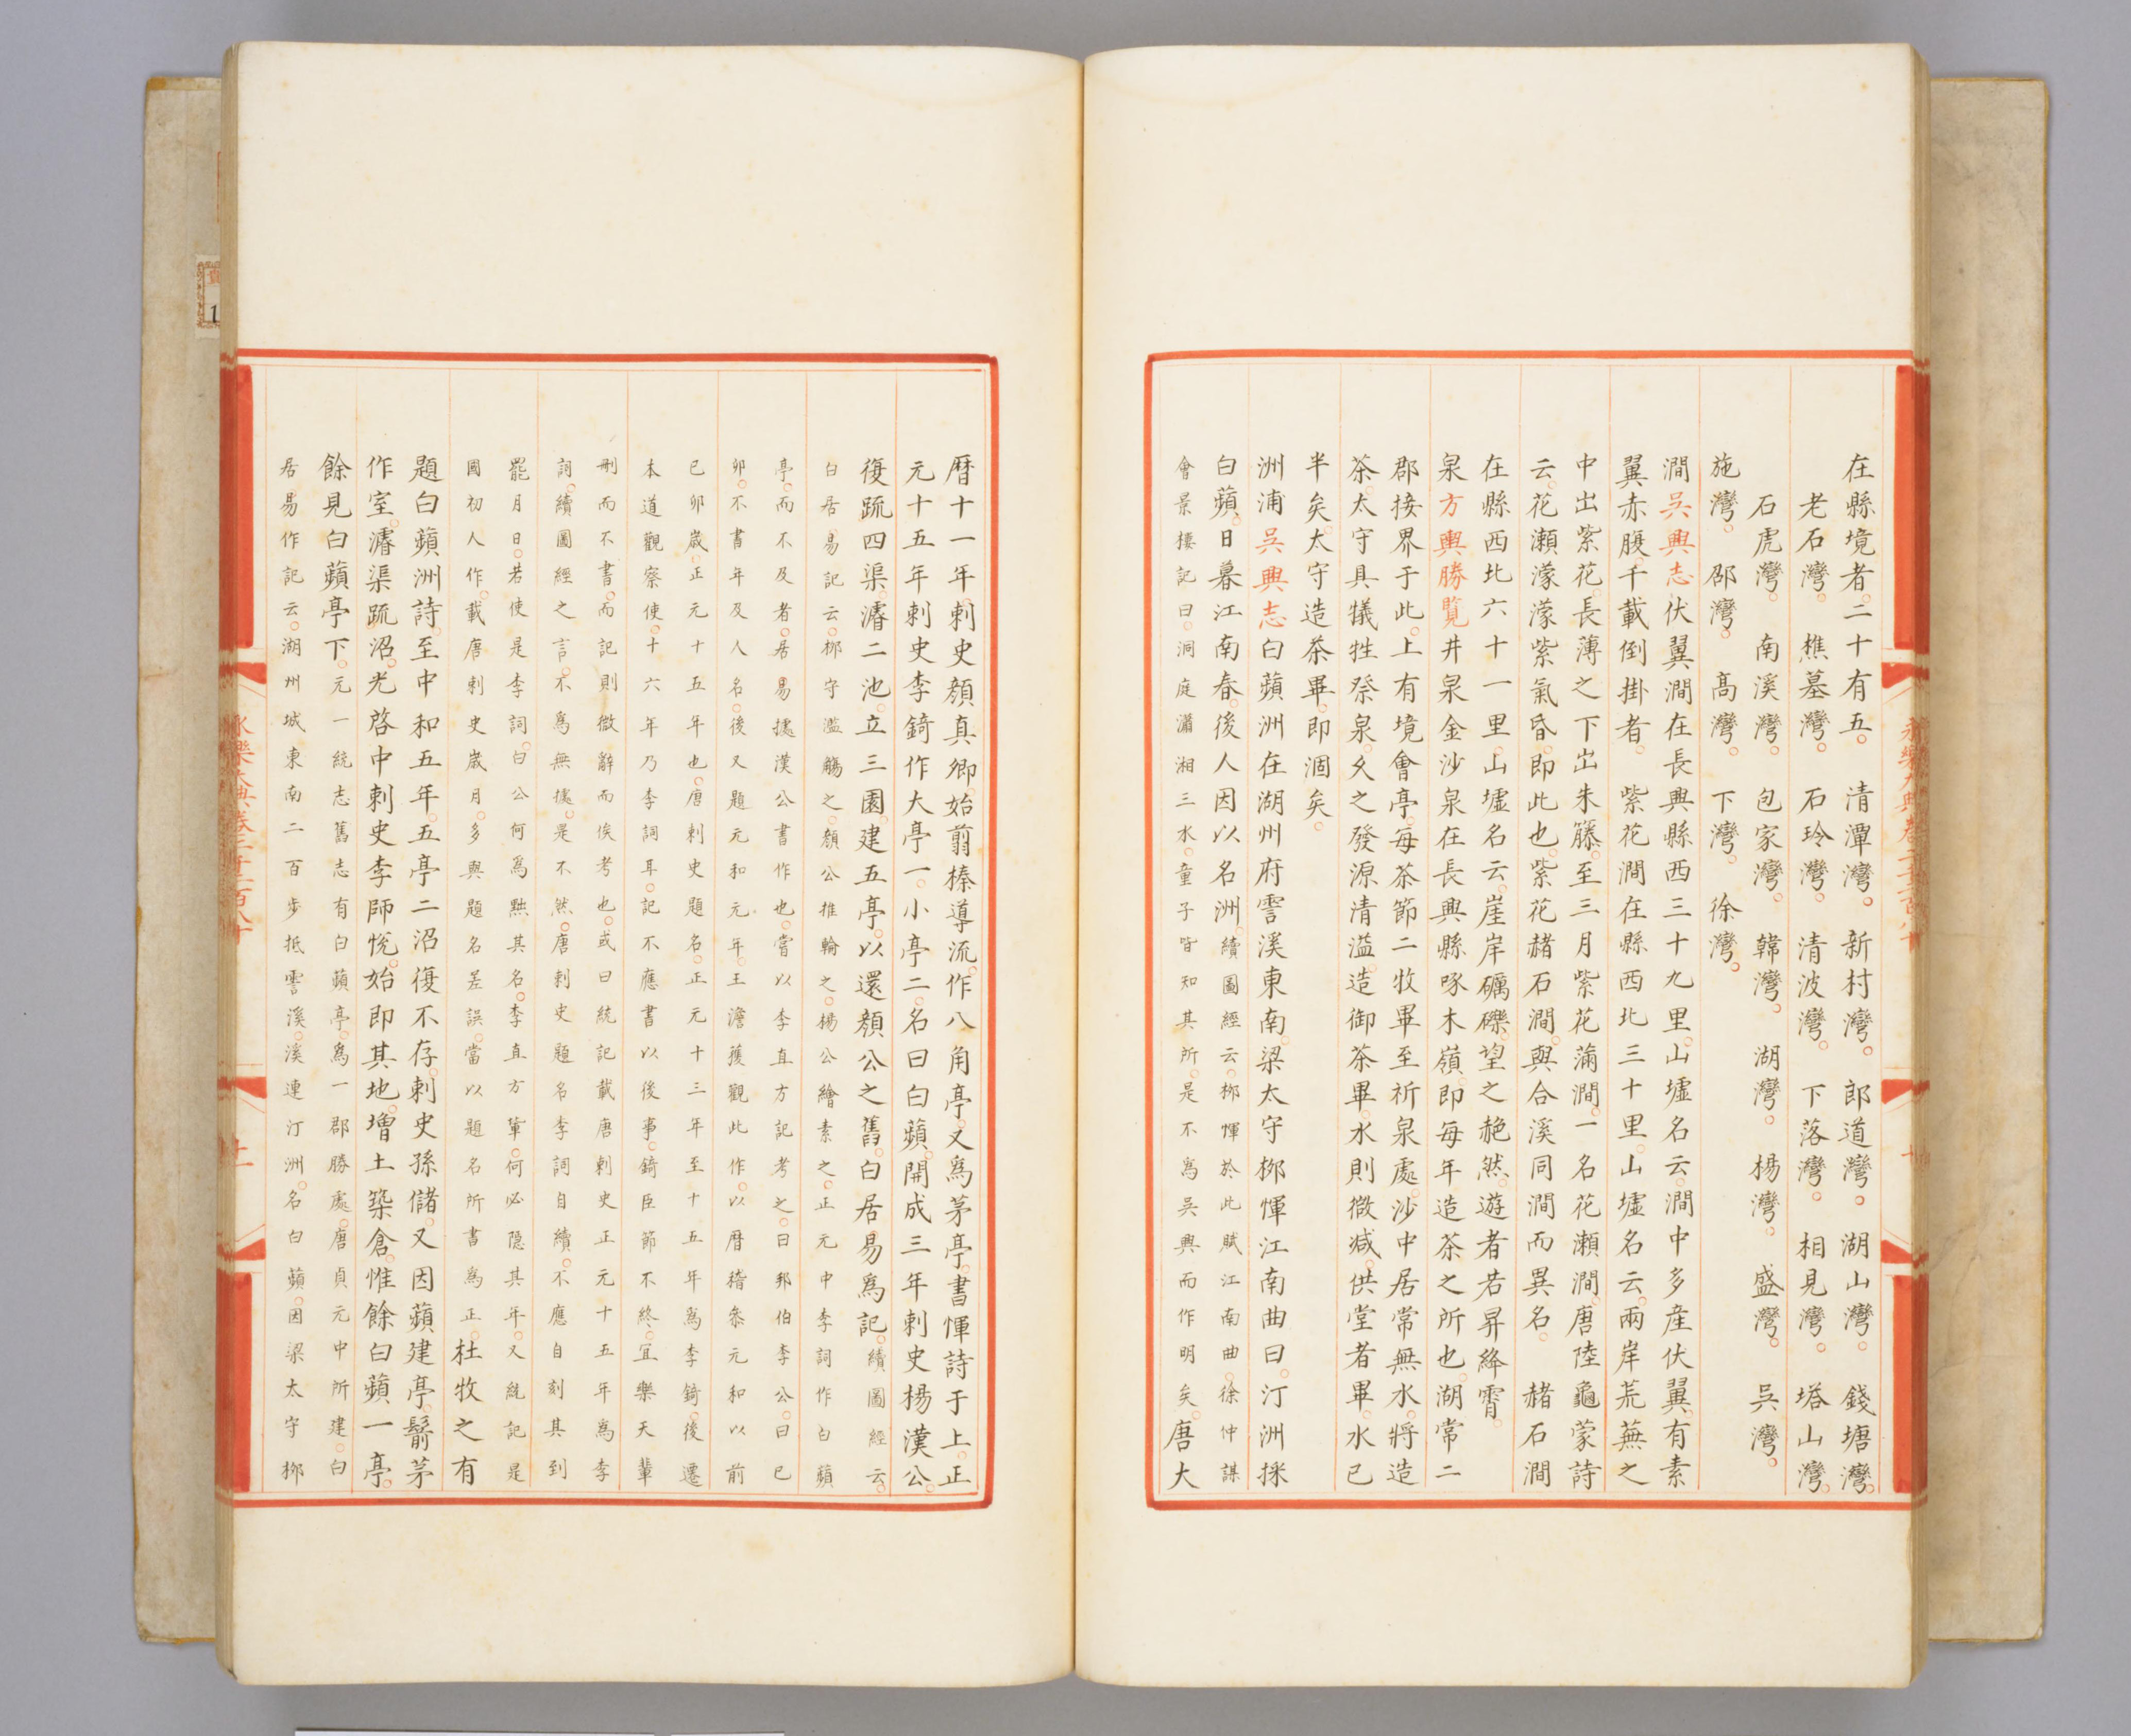 在縣境者二十有五 清潭灣 新村灣 郎道灣 湖山灣 錢塘灣
老石灣 樵墓灣 石玲灣 清波灣 下落灣 相見灣 塔山灣
石虎灣 南溪灣 包家灣 韓灣 湖灣 楊灣 盛灣 吳灣
施灣 邵灣 高灣 下灣 徐灣
澗吳興志伏翼澗在長興縣西三十九里山墟名云澗中多產伏翼有素
翼赤腹千載倒掛者 紫花澗在縣西北三十里山墟名云兩岸荒蕪之
中出紫花長薄之下出朱籐至三月紫花滿澗一名花瀨澗唐陸龜蒙詩
云花瀨濛濛紫氣昏即此也紫花赭石澗與合溪同澗而異名 赭石澗
在縣西北六十一里山墟名云崖岸礪礫望之赩然遊者若昇絳霄
泉方輿勝覽井泉金沙泉在長興縣啄木嶺即每年造茶之所也湖常二
郡接界于此上有境會亭每茶節二牧畢至祈泉處沙中居常無水將造
茶太守具犧牲祭泉乆之發源清溢造御茶畢水則微减供堂者畢水已
半矣太守造茶畢即涸矣
洲浦吳興志白蘋洲在湖州府霅溪東南梁太守柳惲江南曲曰汀洲採
白蘋日暮江南春後人因以名洲續圖經云柳惲於此賦江南曲徐仲謀
會景樓記曰洞庭瀟湘三水童子皆知其所是不爲吳興而作明矣唐大
曆十一年刺史顏真卿始翦榛導流作八角亭又爲茅亭書惲詩于上正
元十五年刺史李錡作大亭一小亭二名曰白蘋開成三年刺史楊漢公
復疏四渠濬二池立三園建五亭以還顏公之舊白居易爲記續圖經云
白居易記云柳守濫觴之顏公推輪之楊公繪素之正元中李詞作白蘋
亭而不及者居易據漢公書作也嘗以李直方記考之曰邦伯李公曰已
卯不書年及人名後又題元和元年王澹獲觀此作以曆稽叅元和以前
已卯歲正元十五年也唐刺史題名正元十三年至十五年爲李錡後遷
本道觀察使十六年乃李詞耳記不應書以後事錡臣節不終宜樂天輩
刪而不書而記則微辭而俟考也或曰統記載唐刺史正元十五年爲李
詞續圖經之言不爲無據是不然唐刺史題名李詞自續不應自刻其到
罷月日若使是李詞曰公何爲黙其名李直方軰何必隱其年又統記是
國初人作載唐刺史歲月多與題名差誤當以題名所書爲正杜牧之有
題白蘋洲詩至中和五年五亭二沼復不存刺史孫儲又因蘋建亭鬋茅
作室濬渠疏沼光啓中刺史李師悅始即其地增土築倉惟餘白蘋一亭
餘見白蘋亭下元一統志舊志有白蘋亭爲一郡勝處唐貞元中所建白
居易作記云湖州城東南二百步抵霅溪溪連汀洲名白蘋因梁太守柳